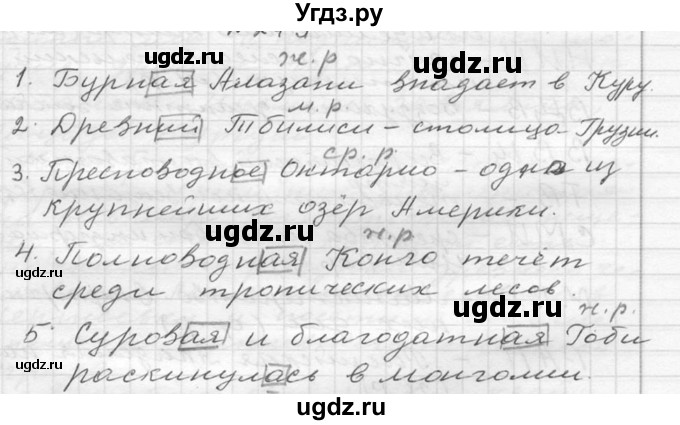 Угдз.ру
ж.р
1. Бурная Алазани впадает в Куру.
м.р.
2. Древний Тбилиси – столица Грузии.
ср.р.
3. Пресноводное Онтарио – одно из
крупнейших озёр Америки.
ж.р
4. Полноводная Конго течёт
среди тропических лесов.
ж.р.
5. Суровая и благодатная Гоби
раскинулась в Монголии.
ugdz.ru
ugdz.ru
ugdz.ru
ugdz.ru
ugdz.ru
ugdz.ru
ugdz.ru
ugdz.ru
ugdz.ru
ugdz.ru
ugdz.ru